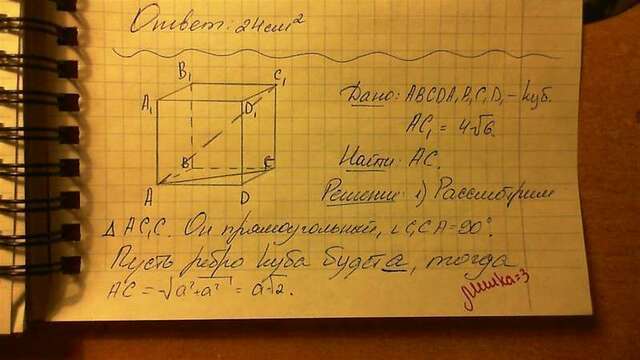 Ответ: 24 см²
B₁
C₁
A₁
D₁
B
C
A
D
Дано: ABCDA₁B₁C₁D₁ - куб.
AC₁ = 4√6.
Найти: AC.
Решение: 1) Рассмотрим
Δ AC₁C. Он прямоугольный, ∠C₁CA = 90°.
Пусть ребро куба будет a, тогда
AC = √a²+a² = a√2.
Мишка=3